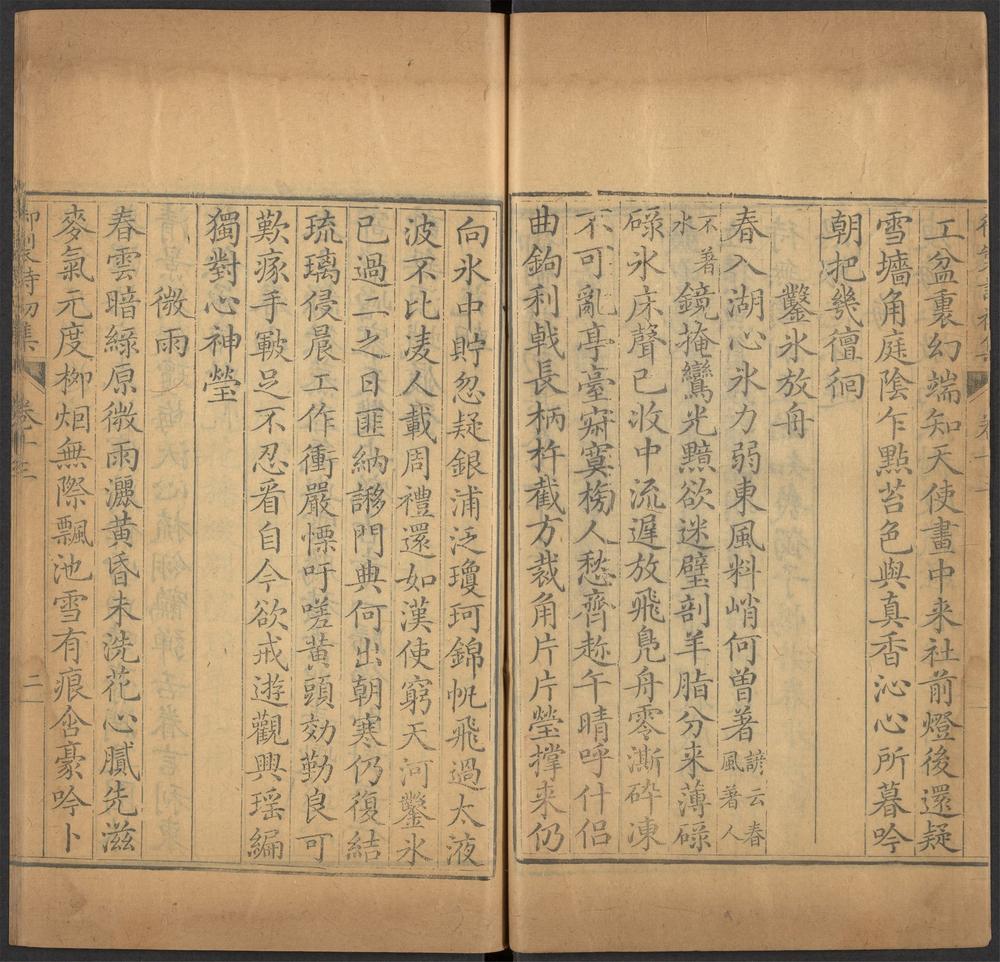 工盆裏幻端知天使畫中来社前燈後還疑
雪墻角庭陰乍點苔色與真香沁心所暮吟
朝把幾徊徊
鑿氷放舟
春入湖心氷力弱東風料峭何曽著諺云春風著人
不著水鏡掩鸞光黯欲迷璧剖羊脂分来薄碌
碌氷床聲已收中流遲放飛鳧舟零澌碎凍
不可亂亭臺寂寞榜人愁齊趂午晴呼什侣
曲鉤利戟長柄杵截方裁角片片瑩撑来仍
向氷中貯忽疑銀浦泛瓊珂錦帆飛過太液
波不比凌人載周禮還如漢使窮天河鑿氷
已過二之日匪納謻門典何出朝寒仍復結
琉璃侵晨工作衝嚴慄吁嗟黄頭効勤良可
歎瘃手皸足不忍看自今欲戒遊觀興瑶編
獨對心神瑩
微雨
春雲暗綠原微雨灑黄昏未洗花心膩先滋
麥氣元度柳烟無際飄池雪有痕含豪吟卜
御製詩初集 卷十二 二